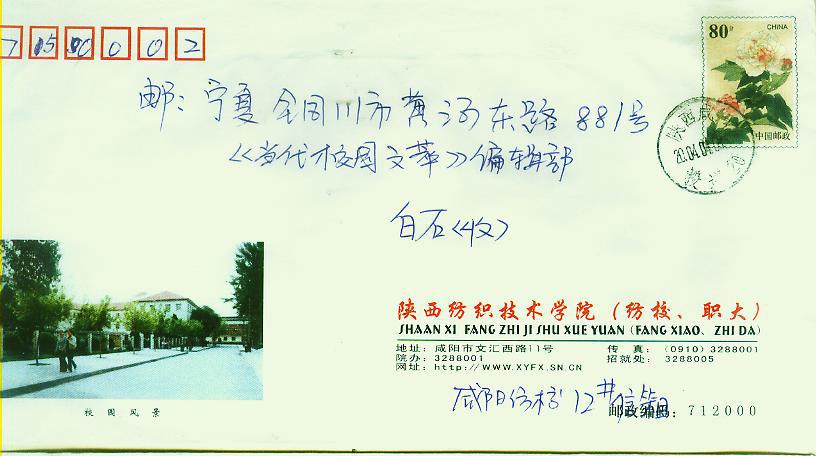 7 15 00 0 0 2
80分
CHINA
中国邮政
陕西咸
20.04.04
邮: 宁夏 全同川市黄河东路881号
《当代校园文萃》偏辑部
白石(收)
校园风景
陕西纺织技术学院（纺校、职大）
SHAAN XI FANG ZHI JI SHU XUE YUAN (FANG XIAO、ZHI DA)
地址: 咸阳市文汇西路11号 传 真: (0910) 3288001
院办: 3288001 招就处: 3288005
网址: http://WWW.XYFX.SN.CN
咸阳纺校12#信箱
邮政编码: 712000